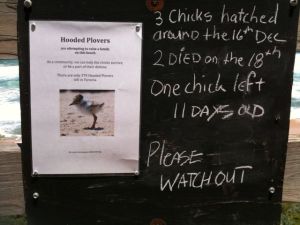 Hooded Plovers
are attempting to raise a family
on this beach.
As a community, we can help the chicks survive,
or be a part of their demise.
There are only 370 Hooded Plovers
left in Victoria
3 Chicks hatched
around the 16th Dec
2 DIED on the 18th
One chick left
11 DAYS OLD
PLEASE
WATCH OUT